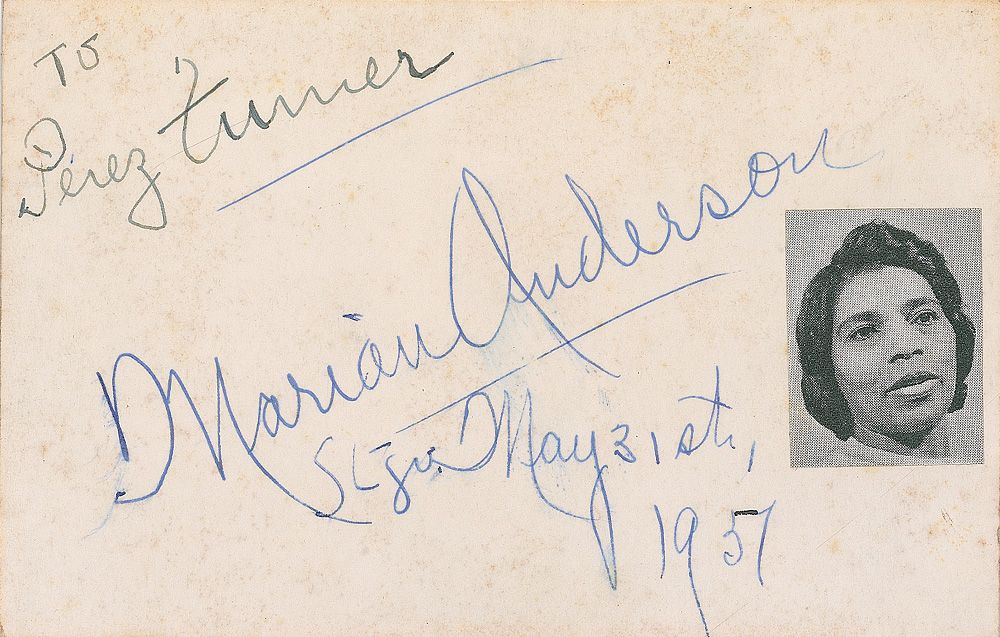 To
Perez Turner
Marian Anderson
May 31st,
1951